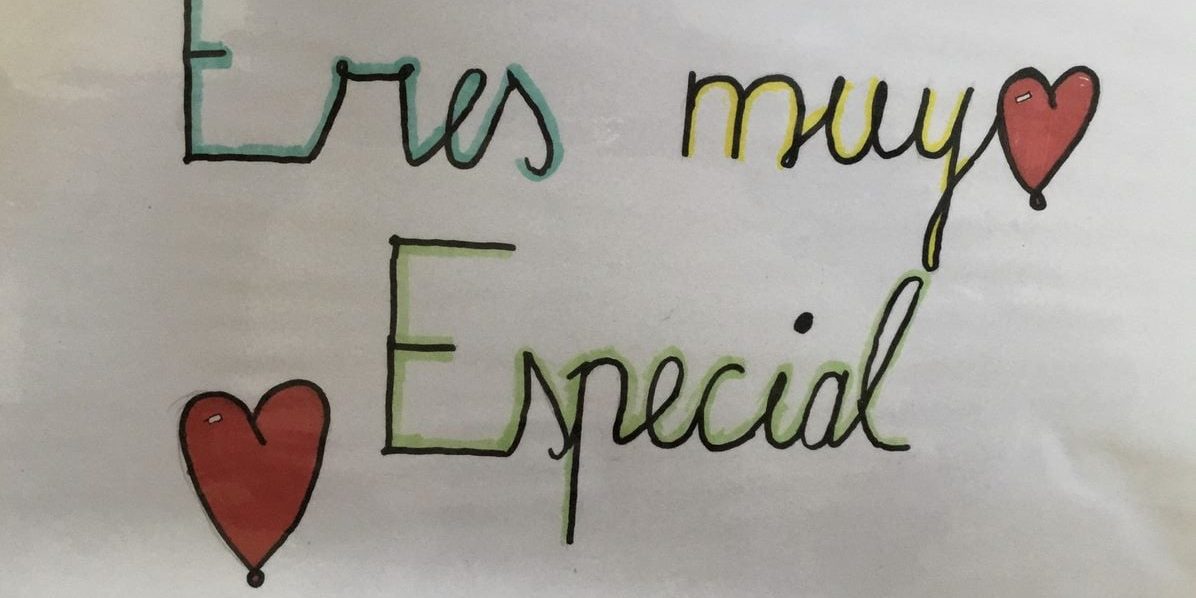 Eres muy
Especial